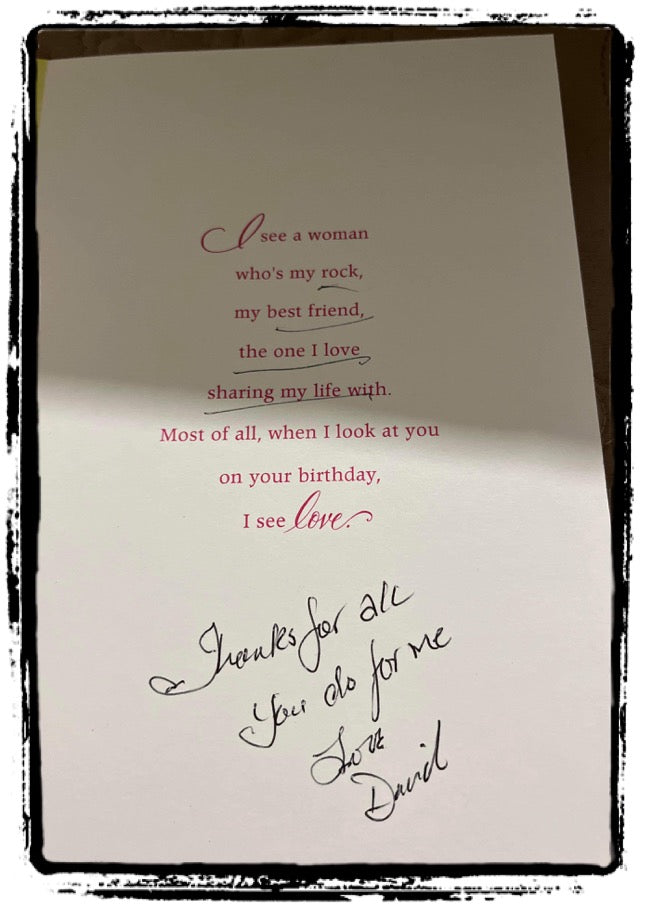 I see a woman
who's my rock,
my best friend,
the one I love
sharing my life with.
Most of all, when I look at you
on your birthday,
I see love.
Thanks for all
you do for me
Love
David